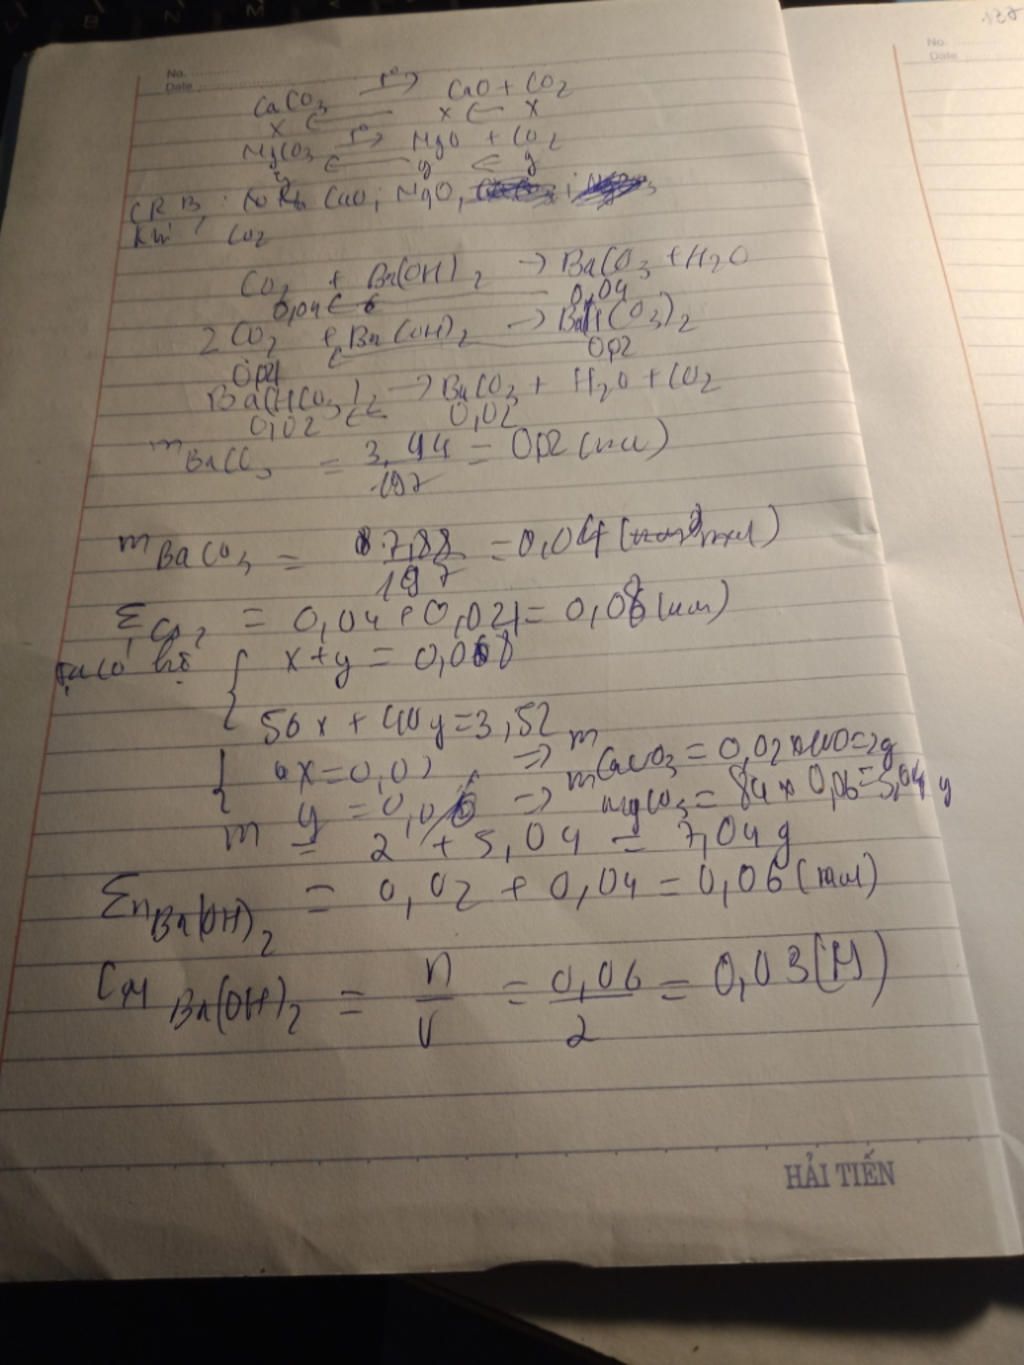 No.
Date
CaCO3 t° → CaO + CO2
x ← x ← x
MgCO3 t° → MgO + CO2
y ← y ← y
CR B : CaO, MgO,
khí CO2
CO2 + Ba(OH)2 → BaCO3 + H2O
0,04 ← 0,04
2CO2 + Ba(OH)2 → Ba(HCO3)2
0,04 ← 0,02
Ba(HCO3)2 → BaCO3 + H2O + CO2
0,02 ← 0,02
mBaCO3 = 3,94/197 = 0,02 (mol)
mBaCO3 = 7,88/197 = 0,04 (mol)
ΣCO2 = 0,04 + 0,04 = 0,08 (mol)
Ta có hệ { x + y = 0,08
56x + 40y = 3,52
{ x = 0,02 => mCaCO3 = 0,02 x 100 = 2g
y = 0,06 => mMgCO3 = 84 x 0,06 = 5,04 g
m = 2 + 5,04 = 7,04g
ΣnBa(OH)2 = 0,02 + 0,04 = 0,06 (mol)
CM Ba(OH)2 = n/V = 0,06/2 = 0,03 (M)
HẢI TIẾN
No.
Date